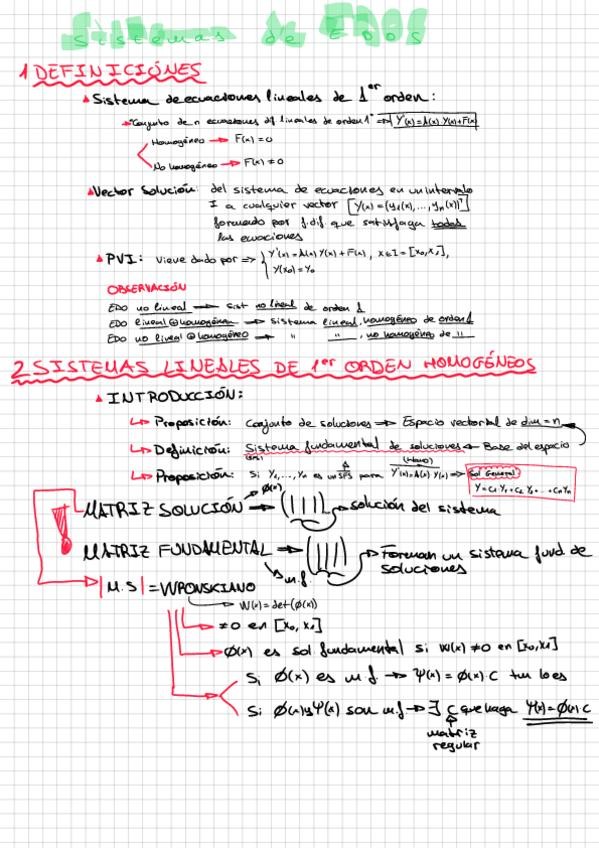 Sistemas de EDOS
1 DEFINICIÓNES
Sistema de ecuaciones lineales de 1er orden:
"Conjunto de n ecuaciones dif lineales de orden 1" ⇒ Y'(x)=A(x) Y(x)+F(x)
Homogéneo → F(x)=0
No homogéneo → F(x)≠0
Vector Solución: del sistema de ecuaciones en un intervalo
I a cualquier vector [Y(x)=(y1(x),...,yn(x))ᵀ]
formado por f.dif que satisfaga todas
las ecuaciones
PVI: Viene dado por ⇒ { Y'(x)=A(x) Y(x)+F(x), x∈I=[x0,x1],
Y(x0)=Y0
OBSERVACIÓN
EDO no lineal → Sist no lineal de orden 1
EDO lineal ⊕ homogénea → sistema lineal, homogéneo de orden 1
EDO no lineal ⊕ homogéneo → " ", no homogéneo de "
2 SISTEMAS LINEALES DE 1er ORDEN HOMOGÉNEOS
INTRODUCCIÓN:
Proposición: Conjunto de soluciones ⇒ Espacio vectorial de dim = n
Definición: Sistema fundamental de soluciones ← Base del espacio
(SFS)
(Homo)
Proposición: Si Y1,...,Yn es un SFS para Y'(x)=A(x) Y(x) ⇒ Sol General
Y=C1 Y1+C2 Y2+...+Cn Yn
Ø(x)
MATRIZ SOLUCIÓN → (||||) → solución del sistema
MATRIZ FUNDAMENTAL → (|||) → Forman un sistema fund de
m.f
soluciones
|M.S| = WRONSKIANO
W(x)=det(Ø(x))
≠0 en [x0, x1]
Ø(x) es sol fundamental si W(x) ≠0 en [x0,x1]
Si Ø(x) es m.f → Ψ(x) = Ø(x)·C tm lo es
Si Ø(x) y Ψ(x) son m.f → ∃ C que haga Ψ(x)=Ø(x)·C
matriz
regular